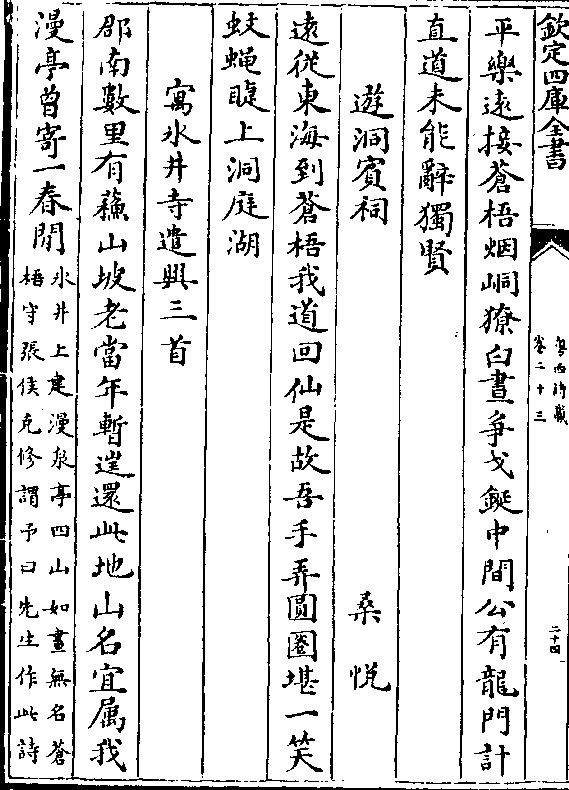 欽定四庫全書
粤西詩載
卷二十三
二十四
平樂遠接蒼梧烟峒獠白晝爭戈鋋中間公有龍門計
直道未能辭獨賢
遊洞賓祠
桑悦
遠從東海到蒼梧我道回仙是故吾手弄圓圈堪一笑
蚊蝿睫上洞庭湖
寓氷井寺遣興三首
郡南數里有蘓山坡老當年暫遟還此地山名宜属我
漫亭曾寄一春閒
氷井上建漫泉亭四山如畫無名蒼
梧守張侯克修謂予曰先生作此詩